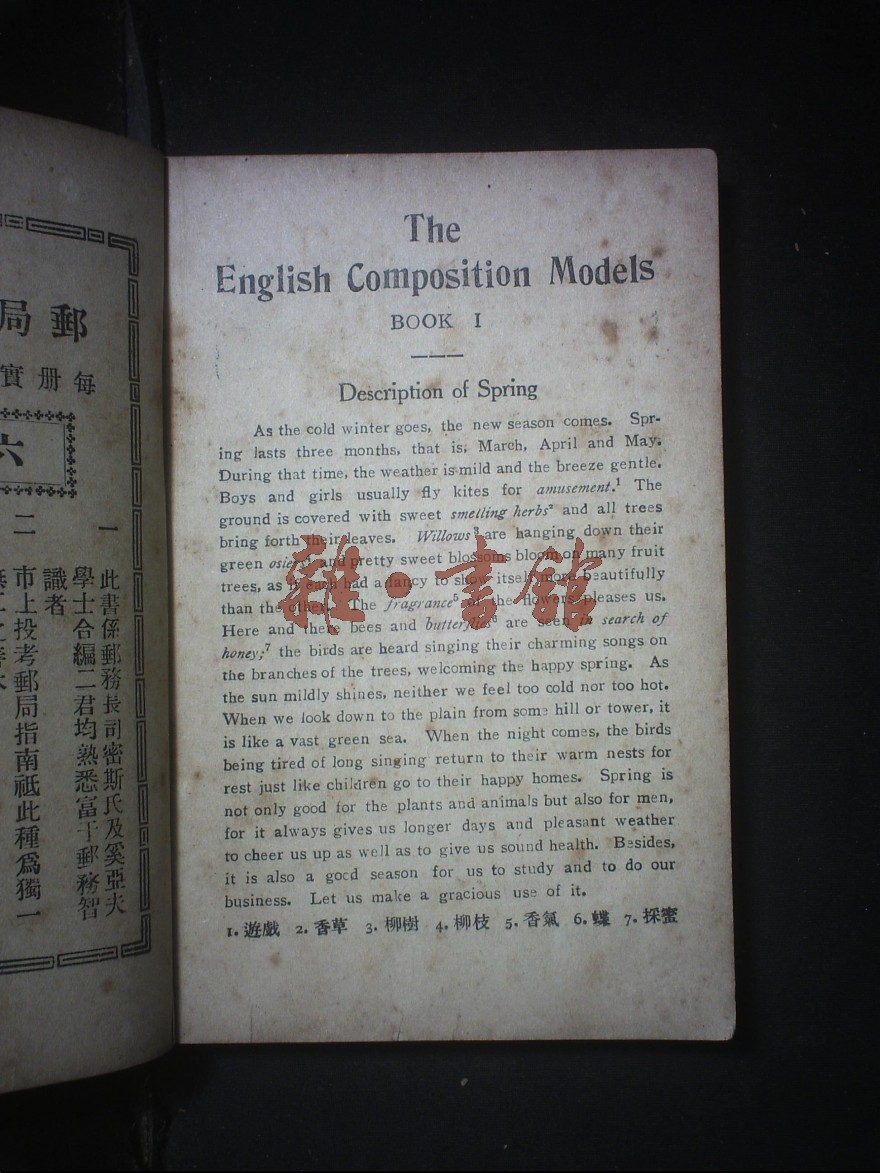 郵局
每册實
六
一 此書係郵務長司密斯氏及奚亞夫
學士合編二君均熟悉富于郵務智
識者
二 市上投考郵局指南祗此種爲獨一
The
English Composition Models
BOOK I
Description of Spring
As the cold winter goes, the new season comes. Spr-
ing lasts three months, that is, March, April and May.
During that time, the weather is mild and the breeze gentle.
Boys and girls usually fly kites for amusement.¹ The
ground is covered with sweet smelling herbs² and all trees
bring forth their leaves. Willows³ are hanging down their
green osiers⁴ and pretty sweet blossoms bloom on many fruit
trees, as if each had a fancy to show itself more beautifully
than the other. The fragrance⁵ of the flowers pleases us.
Here and there bees and butterflies⁶ are seen in search of
honey;⁷ the birds are heard singing their charming songs on
the branches of the trees, welcoming the happy spring. As
the sun mildly shines, neither we feel too cold nor too hot.
When we look down to the plain from some hill or tower, it
is like a vast green sea. When the night comes, the birds
being tired of long singing return to their warm nests for
rest just like children go to their happy homes. Spring is
not only good for the plants and animals but also for men,
for it always gives us longer days and pleasant weather
to cheer us up as well as to give us sound health. Besides,
it is also a good season for us to study and to do our
business. Let us make a gracious use of it.
1. 遊戲 2. 香草 3. 柳樹 4. 柳枝 5. 香氣 6. 蝶 7. 採蜜
雜·書館